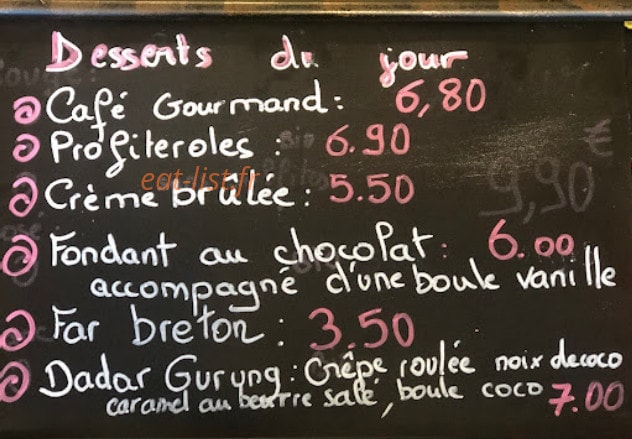 Desserts du jour
Café Gourmand: 6,80
Profiteroles : 6.90
Crème brûlée: 5.50
eat-list.fr
€
9,90
Fondant au chocolat: 6.00
accompagné d'une boule vanille
Far breton : 3.50
Dadar Gurung: Crêpe roulée noix de coco
caramel au beurre salé, boule coco 7.00